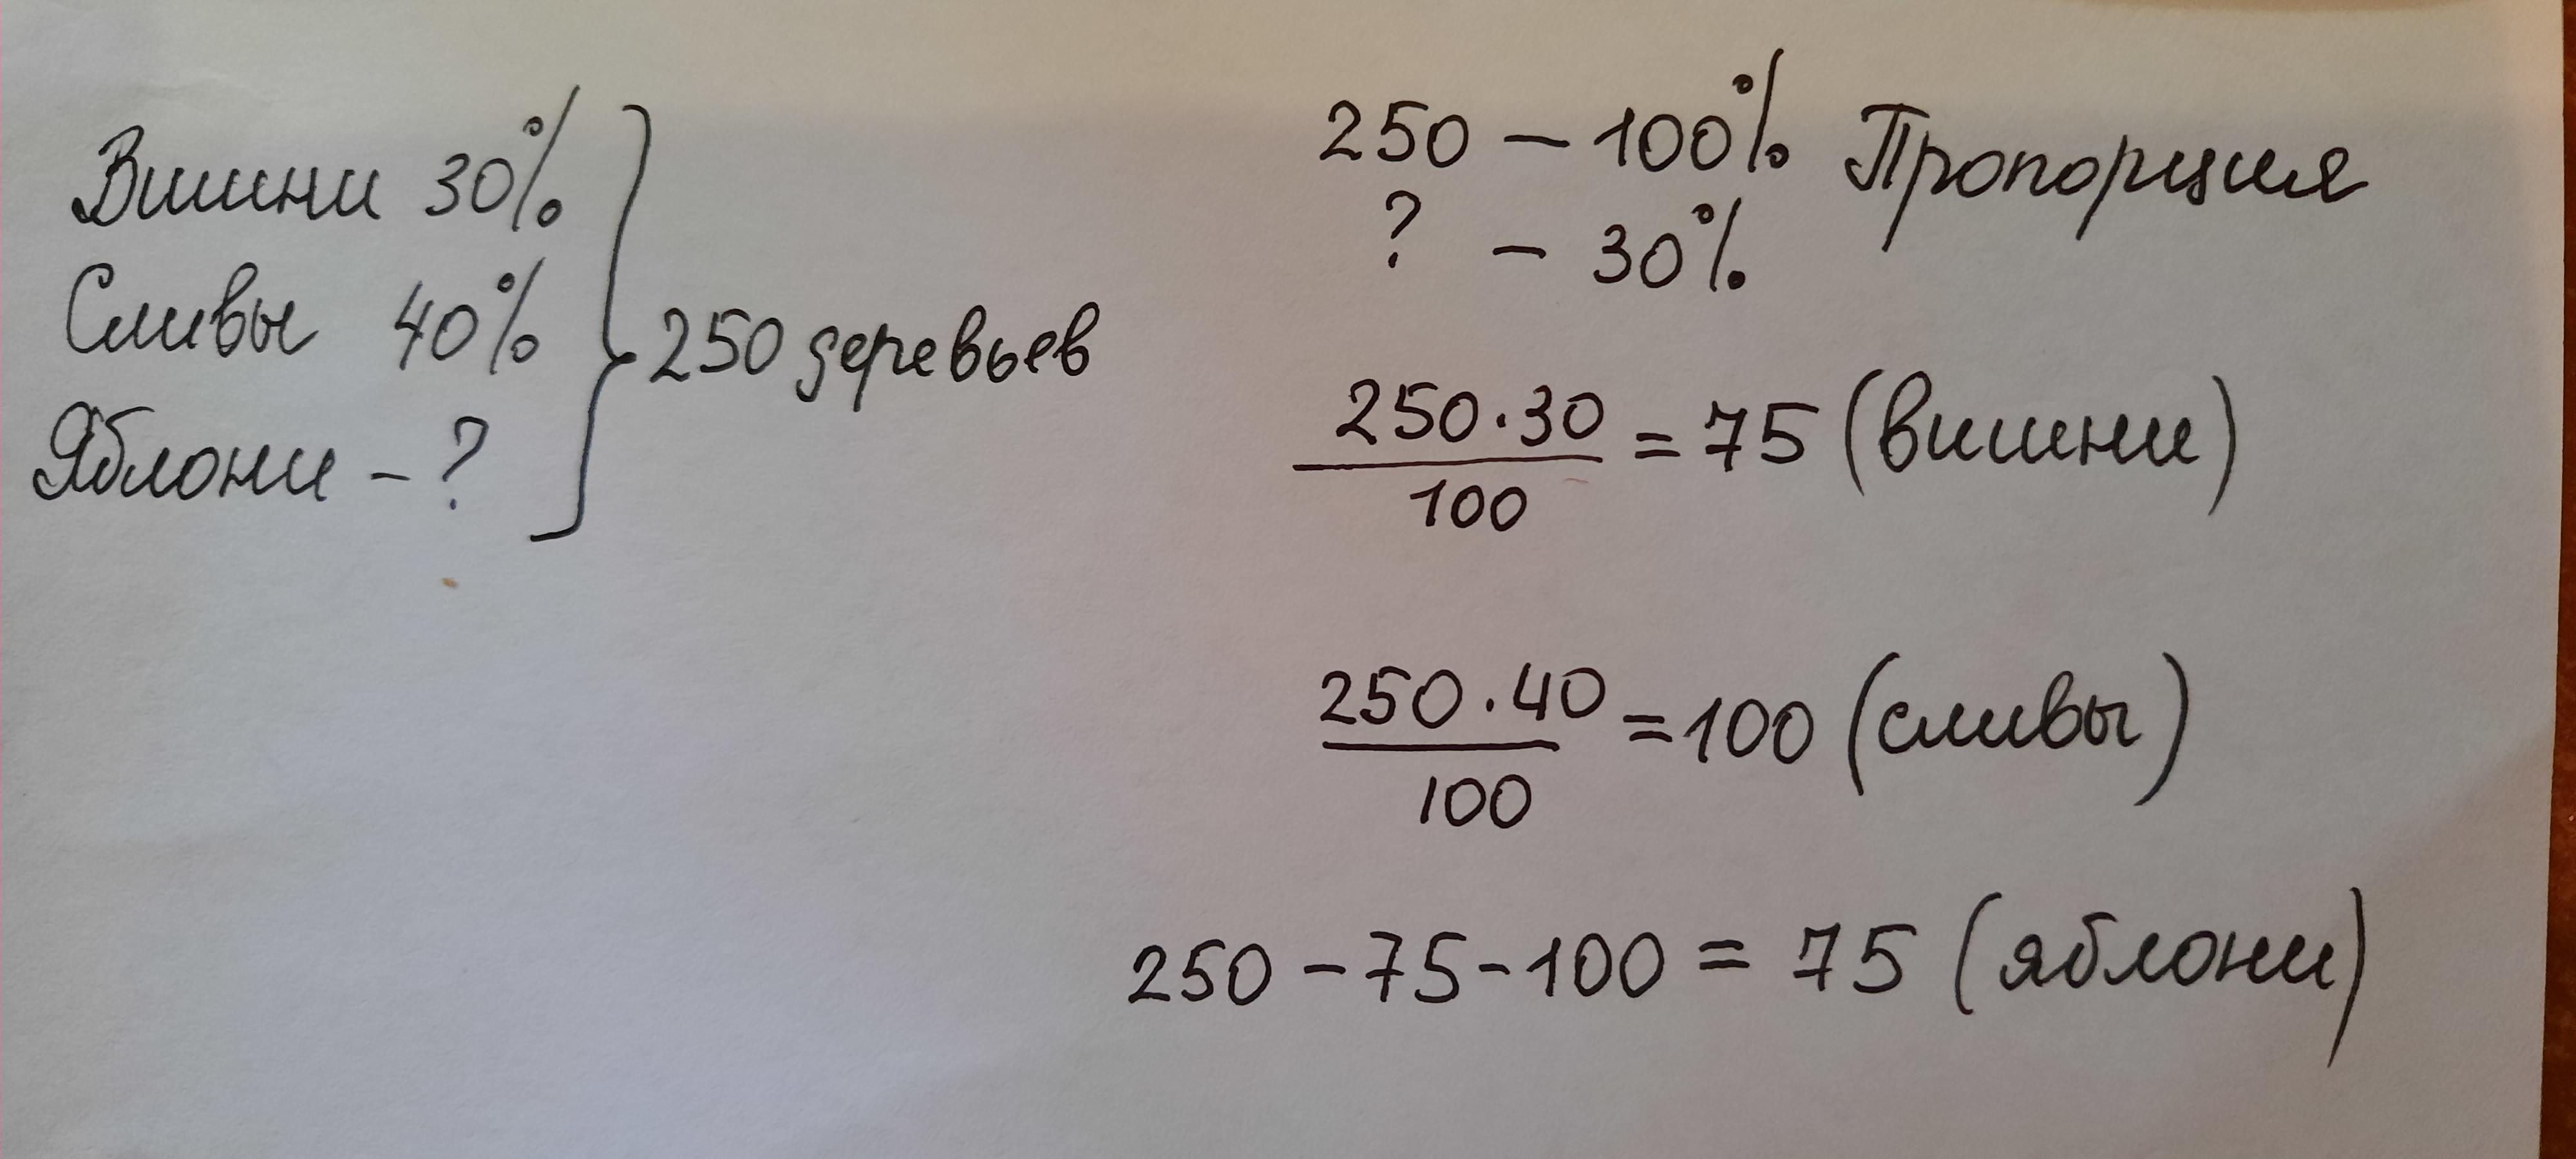 Вишни 30%
Сливы 40%
Яблони - ?
250 деревьев
250 – 100% Пропорция
? – 30%
250·30
100
= 75 (вишни)
250·40
100
= 100 (сливы)
250 – 75 - 100 = 75 (яблони)